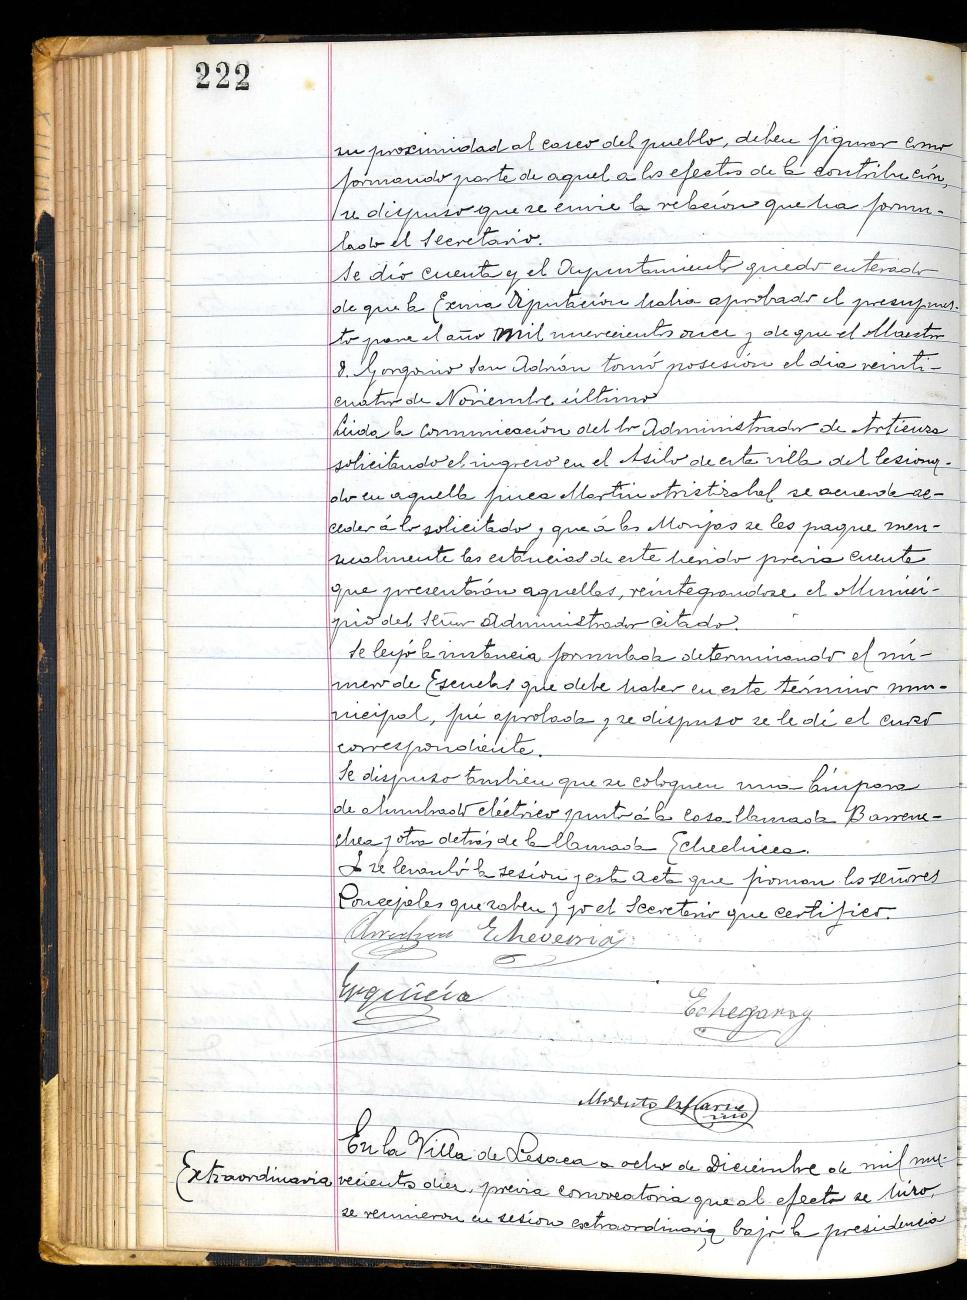 222
su proximidad al casco del pueblo, deben figurar como
formando parte de aquel a los efectos de la contribución,
se dispuso que se envie la relación que ha formu-
lado el Secretario.
Se dió cuenta y el Ayuntamiento quedó enterado
de que la Exma Diputación habia aprobado el presupues-
to para el año mil novecientos once y de que el Maestro
D. Gorgonio San Adrián tomó posesión el dia veinti-
cuatro de Noviembre último
Leida la comunicación del Sr Administrador de Articuza
solicitando el ingreso en el Asilo de esta villa del lesiona-
do en aquella finca Martin Aristizabal se acuerda ac-
ceder á lo solicitado y que á las Monjas se les pague men-
sualmente las estancias de este herido previa cuenta
que presentarán aquellas, reintegrandose el Munici-
pio del Señor Administrador citado.
Se leyó la instancia formulada determinando el nú-
mero de Escuelas que debe haber en este término mu-
nicipal, fué aprobada y se dispuso se le dé el curso
correspondiente.
Se dispuso tambien que se coloquen una lámpara
de alumbrado eléctrico junto á la casa llamada Barrene-
chea y otra detrás de la llamada Echechicea.
Y se levantó la sesión y esta acta que firman los señores
Concejales que saben y yo el Secretario que certifico.
Echeverria
Echegaray
Modesto
En la Villa de Lesaca a ocho de Diciembre de mil no-
Extraordinaria vecientos diez, previa convocatoria que al efecto se hizo,
se reunieron en sesion extraordinaria, bajo la presidencia